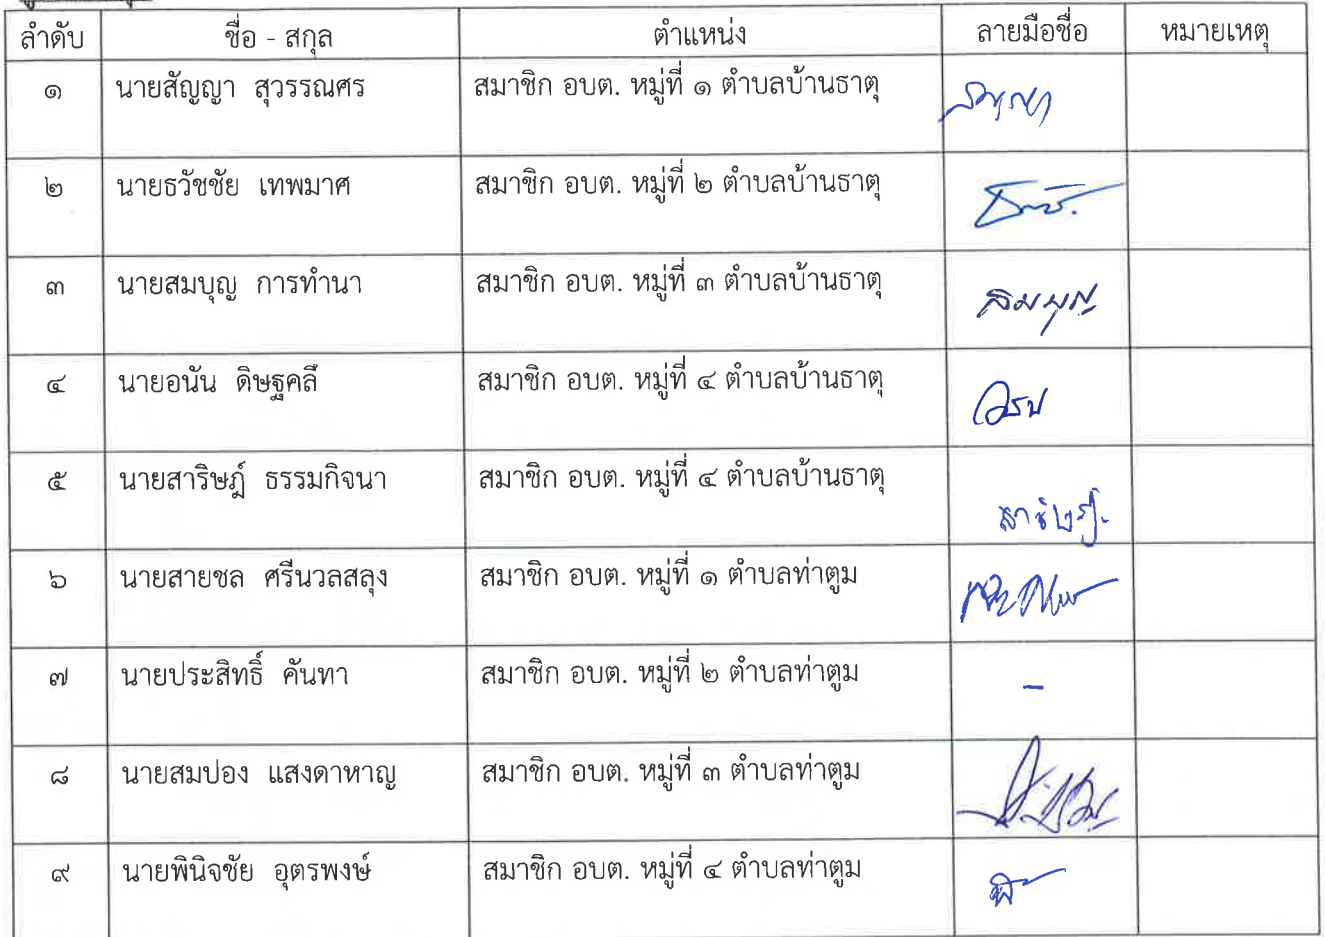 ลำดับ ชื่อ - สกุล ตำแหน่ง ลายมือชื่อ หมายเหตุ
๑ นายสัญญา สุวรรณศร สมาชิก อบต. หมู่ที่ ๑ ตำบลบ้านธาตุ
๒ นายธวัชชัย เทพมาศ สมาชิก อบต. หมู่ที่ ๒ ตำบลบ้านธาตุ
๓ นายสมบุญ การทำนา สมาชิก อบต. หมู่ที่ ๓ ตำบลบ้านธาตุ สมบุญ
๔ นายอนัน ดิษฐคลึ สมาชิก อบต. หมู่ที่ ๔ ตำบลบ้านธาตุ
๕ นายสาริษฎ์ ธรรมกิจนา สมาชิก อบต. หมู่ที่ ๔ ตำบลบ้านธาตุ
๖ นายสายชล ศรีนวลสลุง สมาชิก อบต. หมู่ที่ ๑ ตำบลท่าตูม
๗ นายประสิทธิ์ คันทา สมาชิก อบต. หมู่ที่ ๒ ตำบลท่าตูม -
๘ นายสมปอง แสงดาหาญ สมาชิก อบต. หมู่ที่ ๓ ตำบลท่าตูม
๙ นายพินิจชัย อุตรพงษ์ สมาชิก อบต. หมู่ที่ ๔ ตำบลท่าตูม